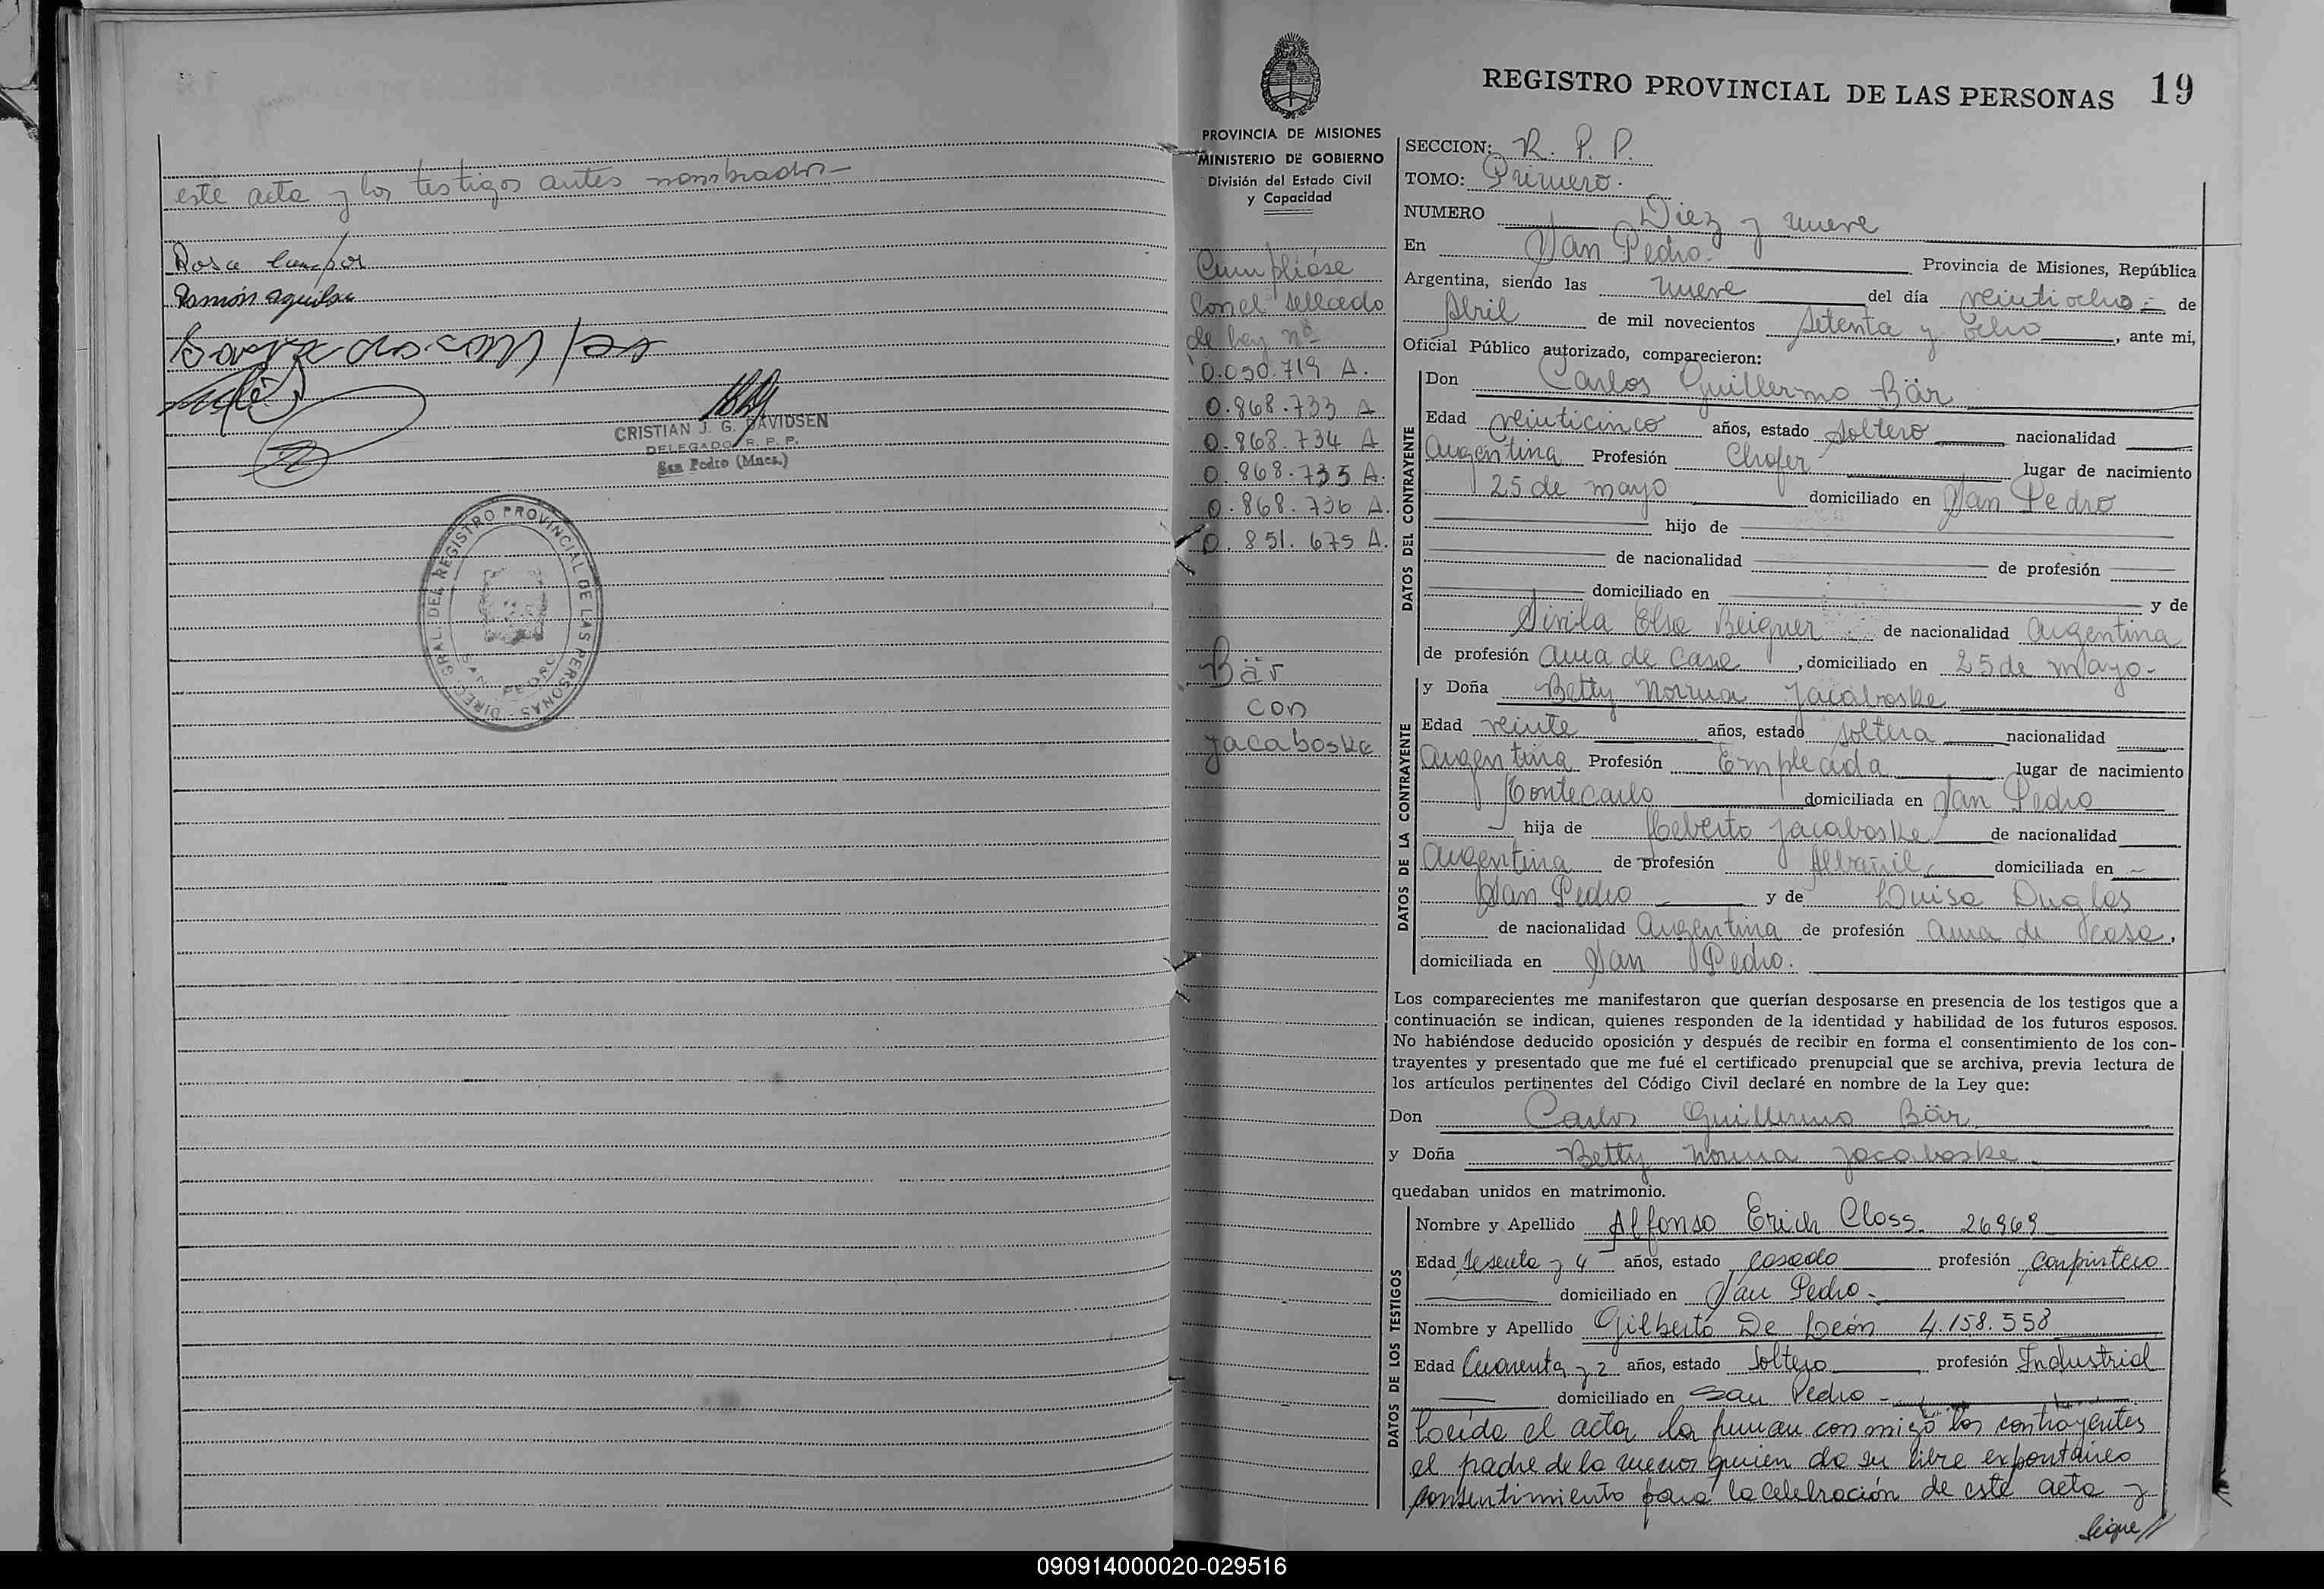 este acta y los testigos antes nombrados-
Rosa Campos
Ramón Aguilar
CRISTIAN J. G. DAVIDSEN
DELEGADO R. P. P.
San Pedro (Mnes.)
DIREC. GRAL. DEL REGISTRO PROVINCIAL DE LAS PERSONAS
SAN PEDRO
REGISTRO PROVINCIAL DE LAS PERSONAS 19
PROVINCIA DE MISIONES
MINISTERIO DE GOBIERNO
División del Estado Civil
y Capacidad
Cumplióse
con el sellado
de ley nº
0.050.719 A.
0.868.733 A
0.868.734 A
0.868.735 A.
0.868.736 A.
0.851.675 A.
Bär
con
Jacaboske
SECCION: R. P. P.
TOMO: Primero.
NUMERO Diez y nueve
En San Pedro. Provincia de Misiones, República
Argentina, siendo las nueve del día veintiocho - de
Abril de mil novecientos setenta y ocho, ante mi,
Oficial Público autorizado, comparecieron:
DATOS DEL CONTRAYENTE
Don Carlos Guillermo Bär
Edad veinticinco años, estado soltero nacionalidad
Argentina Profesión Chofer lugar de nacimiento
25 de mayo domiciliado en San Pedro
hijo de
de nacionalidad de profesión
domiciliado en y de
Sirila Elsa Beigner de nacionalidad argentina
de profesión ama de casa, domiciliado en 25 de mayo-
DATOS DE LA CONTRAYENTE
y Doña Betty Norma Jacaboske
Edad veinte años, estado soltera nacionalidad
Argentina Profesión Empleada lugar de nacimiento
Montecarlo domiciliada en San Pedro
hija de Heberto Jacaboske de nacionalidad
Argentina de profesión Albañil domiciliada en
San Pedro y de Luisa Duglas
de nacionalidad Argentina de profesión ama de casa,
domiciliada en San Pedro.
Los comparecientes me manifestaron que querían desposarse en presencia de los testigos que a
continuación se indican, quienes responden de la identidad y habilidad de los futuros esposos.
No habiéndose deducido oposición y después de recibir en forma el consentimiento de los con-
trayentes y presentado que me fué el certificado prenupcial que se archiva, previa lectura de
los artículos pertinentes del Código Civil declaré en nombre de la Ley que:
Don Carlos Guillermo Bär
y Doña Betty Norma Jacaboske
quedaban unidos en matrimonio.
DATOS DE LOS TESTIGOS
Nombre y Apellido Alfonso Erich Closs. 26969
Edad sesenta y 4 años, estado casado profesión carpintero
domiciliado en San Pedro-
Nombre y Apellido Gilberto De León 4.158.558
Edad Cuarenta y 2 años, estado soltero profesión Industrial
domiciliado en San Pedro-
Leída el acta la firman conmigo los contrayentes
el padre de la menor quien da su libre expontáneo
consentimiento para la celebración de este acta y
Sigue//
090914000020-029516